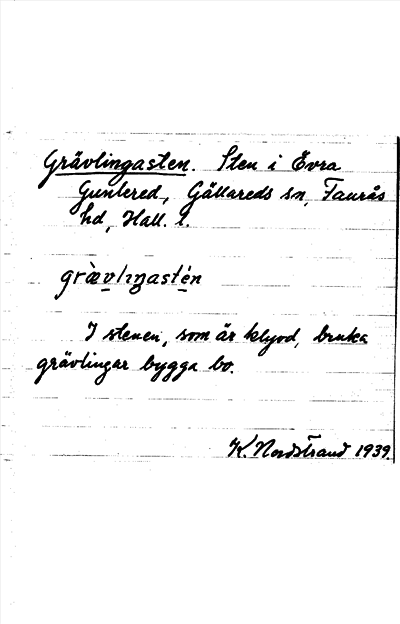 Grävlingasten. Sten i Övra
Guntered, Gällareds sn, Faurås
hd, Hall. l.
grævlıŋastén
I stenen, som är kluvd, bruka
grävlingar bygga bo.
K. Nordstrand 1939.